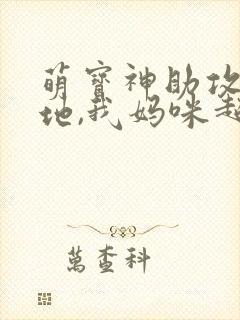 萌宝神助攻
地,我妈咪超
万查科